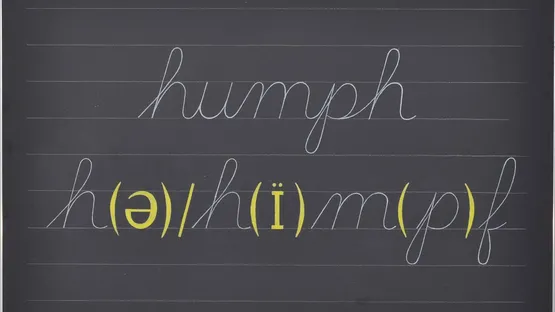 humph
h(ə)/h(ï)m(p)f